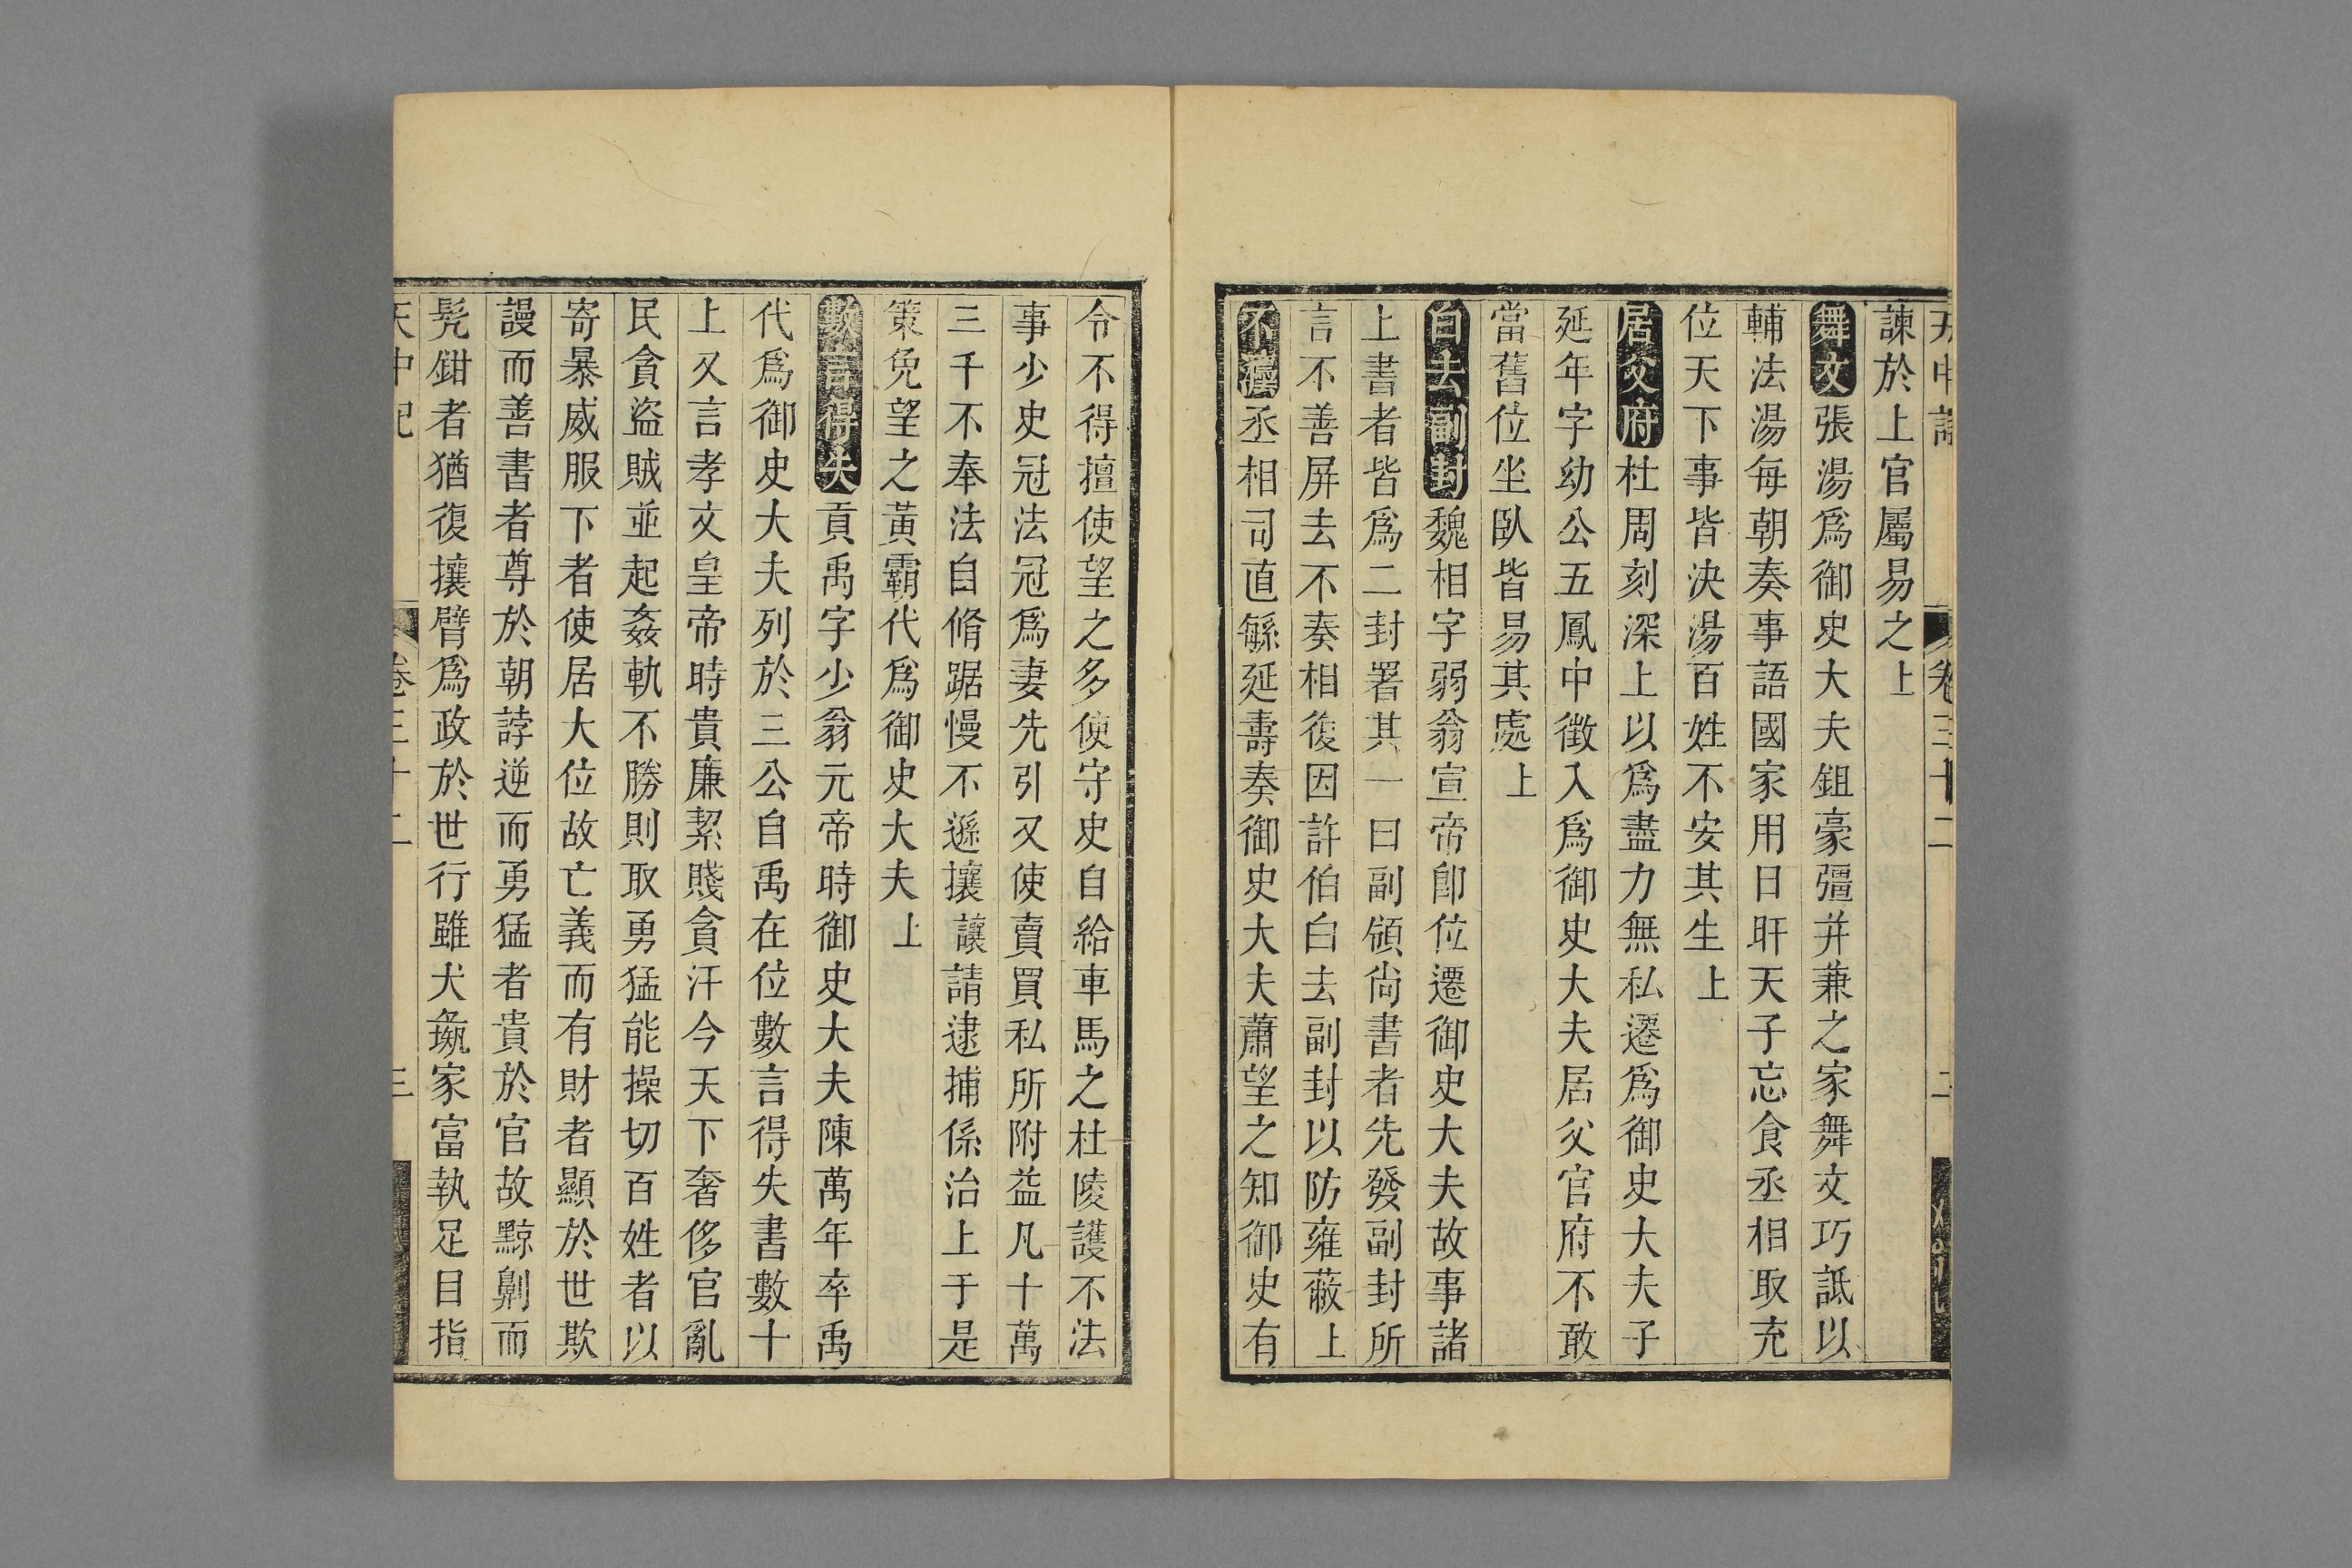 天中記 卷三十二 二
諫於上官屬易之上
舞文張湯爲御史大夫鉏豪彊幷兼之家舞文巧詆以
輔法湯每朝奏事語國家用日旰天子忘食丞相取充
位天下事皆決湯百姓不安其生上
居父府杜周刻深上以爲盡力無私遷爲御史大夫子
延年字幼公五鳳中徵入爲御史大夫居父官府不敢
當舊位坐臥皆易其處上
白去副封魏相字弱翁宣帝卽位遷御史大夫故事諸
上書者皆爲二封署其一曰副領尚書者先發副封所
言不善屏去不奏相復因許伯白去副封以防雍蔽上
不遜丞相司直緐延壽奏御史大夫蕭望之知御史有
令不得擅使望之多使守史自給車馬之杜陵護不法
事少史冠法冠爲妻先引又使賣買私所附益凡十萬
三千不奉法自脩踞慢不遜攘讓請逮捕係治上于是
策免望之黃霸代爲御史大夫上
數言得失貢禹字少翁元帝時御史大夫陳萬年卒禹
代爲御史大夫列於三公自禹在位數言得失書數十
上又言孝文皇帝時貴廉絜賤貪汙今天下奢侈官亂
民貪盜賊並起姦軌不勝則取勇猛能操切百姓者以
寄暴威服下者使居大位故亡義而有財者顯於世欺
謾而善書者尊於朝誖逆而勇猛者貴於官故黥劓而
髡鉗者猶復攘臂爲政於世行雖犬彘家富埶足目指
天中記 卷三十二 三